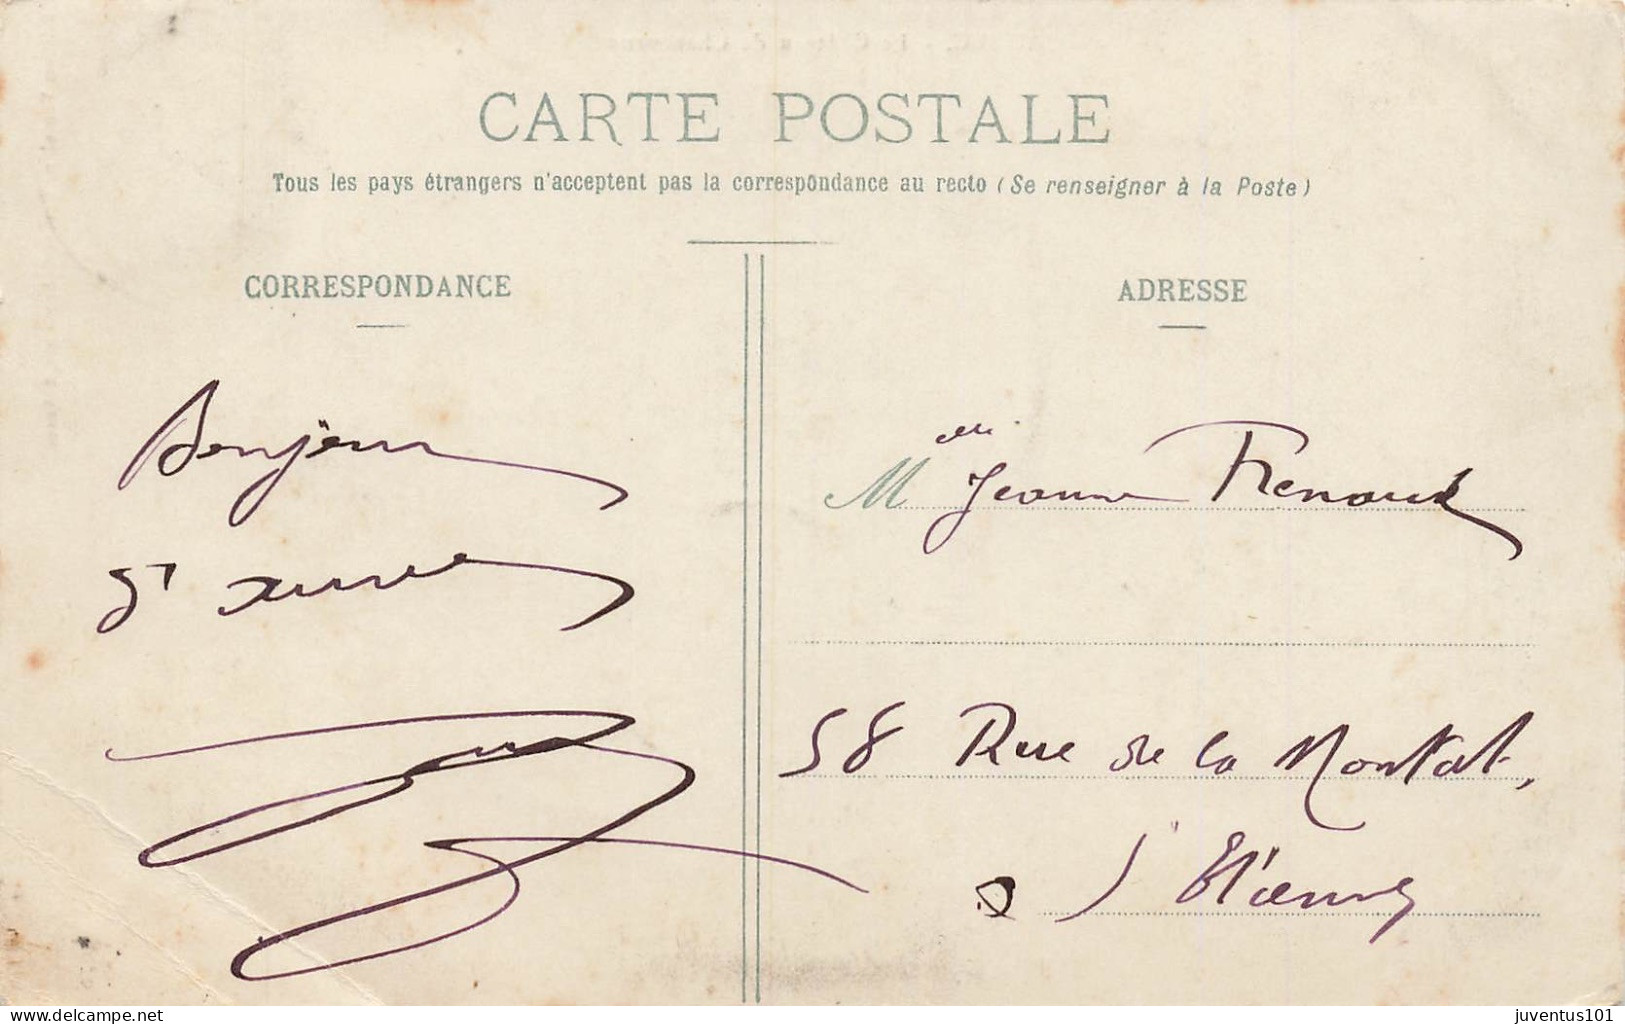 CARTE POSTALE
Tous les pays étrangers n'acceptent pas la correspondance au recto (Se renseigner à la Poste)
CORRESPONDANCE
ADRESSE
Bonjour
St
Melle Jeanne Renaud
58 Rue de la Montat,
St Etienne
www.delcampe.net
juventus101